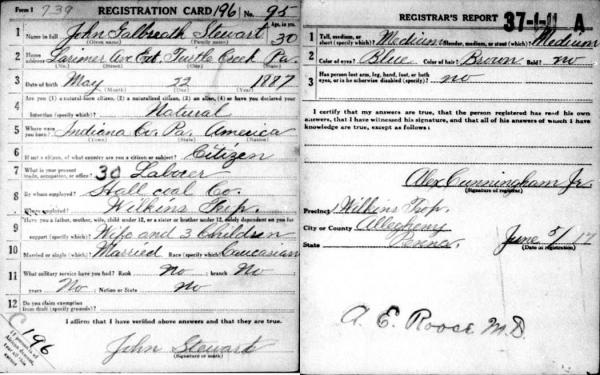 Form 1 739 REGISTRATION CARD 196 No. 95
1 Name in full John Galbreath Stewart Age, in yrs. 30
(Given name) (Family name)
2 Home address Larimer Ave Ext. Turtle Creek Pa.
(No.) (Street) (City) (State)
3 Date of birth May 22 1887
(Month) (Day) (Year)
4 Are you (1) a natural-born citizen, (2) a naturalized citizen, (3) an alien, (4) or have you declared your
intention (specify which)? Natural
5 Where were you born? Indiana Co. Pa. America
(Town) (State) (Nation)
6 If not a citizen, of what country are you a citizen or subject? Citizen
7 What is your present trade, occupation, or office? 30 Laborer
8 By whom employed? Hall coal Co.
Where employed? Wilkins Twp.
9 Have you a father, mother, wife, child under 12, or a sister or brother under 12, solely dependent on you for
support (specify which)? Wife and 3 Children
10 Married or single (which)? Married Race (specify which)? Caucasian
11 What military service have you had? Rank No ; branch No ;
years No ; Nation or State No
12 Do you claim exemption
from draft (specify grounds)?
I affirm that I have verified above answers and that they are true.
196
John Stewart
(Signature or mark)
REGISTRAR'S REPORT 37-1-11 A
1 Tall, medium, or short (specify which)? Medium Slender, medium, or stout (which)? Medium
2 Color of eyes? Blue Color of hair? Brown Bald? no
3 Has person lost arm, leg, hand, foot, or both
eyes, or is he otherwise disabled (specify)? no
I certify that my answers are true, that the person registered has read his own
answers, that I have witnessed his signature, and that all of his answers of which I have
knowledge are true, except as follows:
Alex Cunningham Jr.
(Signature of registrar)
Precinct Wilkins Twp.
City or County Allegheny
State Penna. June 5/17
(Date of registration)
A. E. Roose M.D.